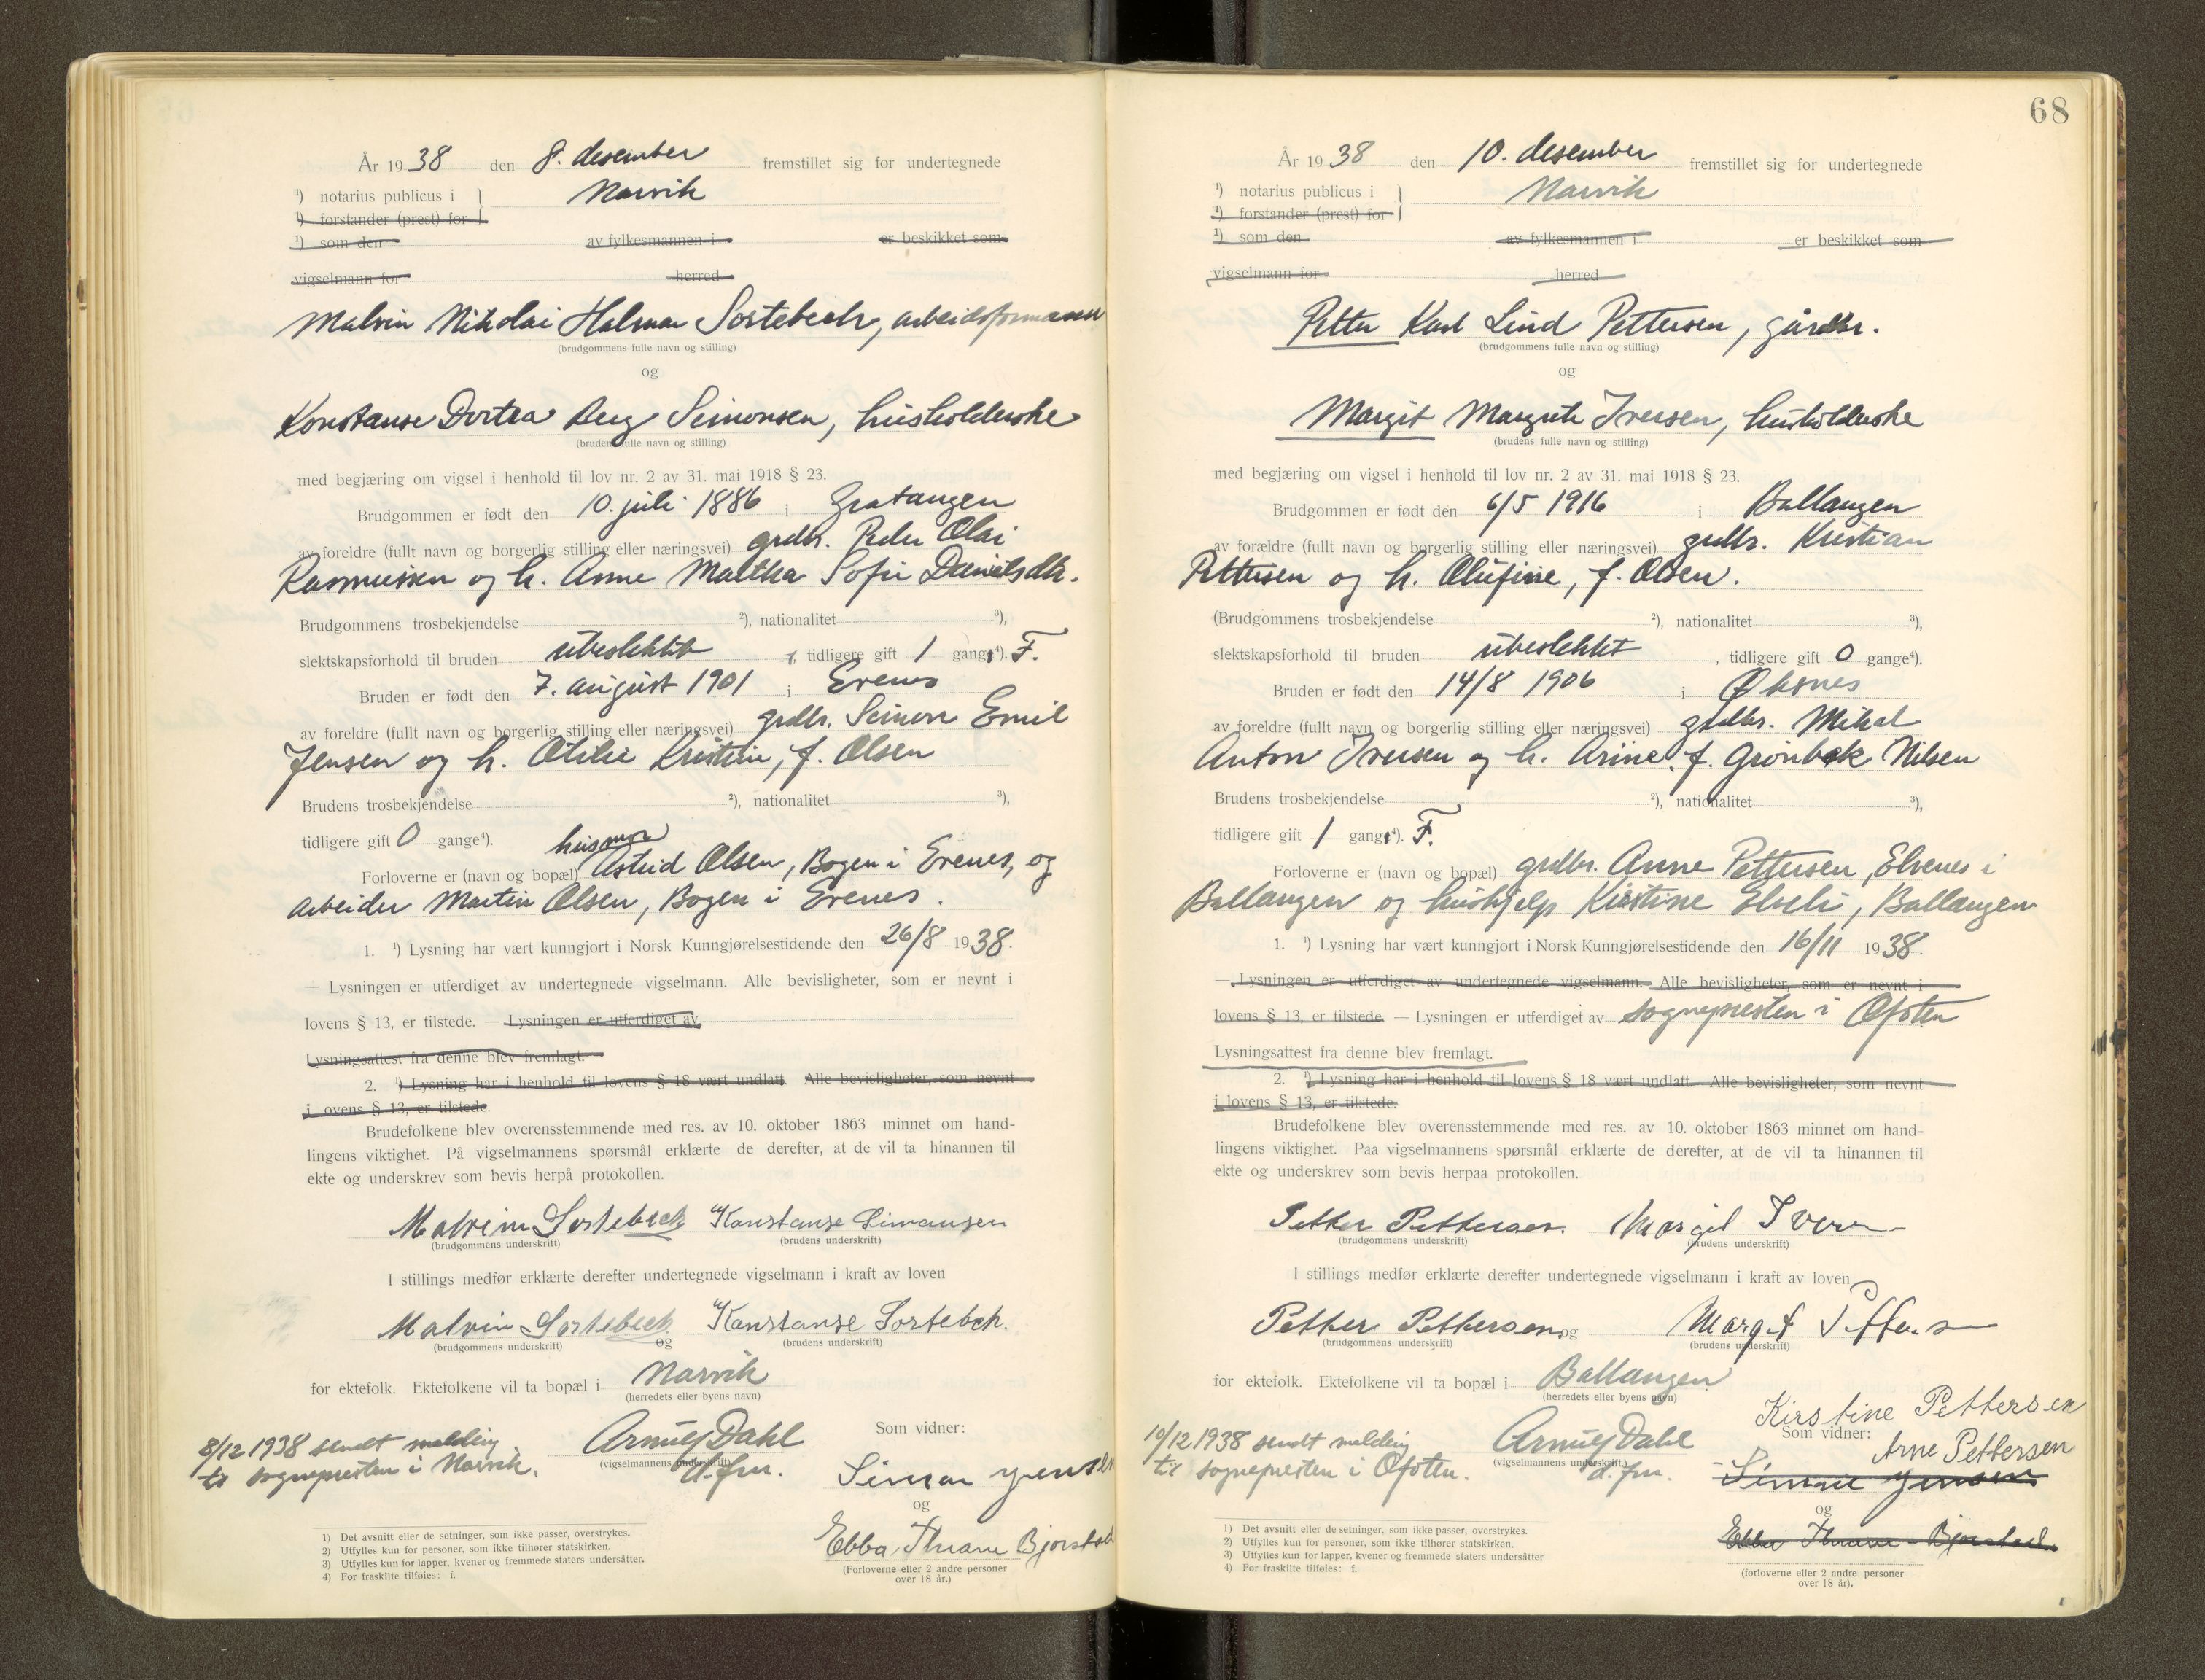 År 1938 den 8. desember fremstillet sig for undertegnede
¹) notarius publicus i } Narvik
¹) forstander (prest) for
¹) som den av fylkesmannen i er beskikket som
vigselmann for herred
Malvin Nikolai Halmar Sortebech, arbeidsformann
(brudgommens fulle navn og stilling)
og
Konstanse Dortea Berg Simonsen, husholderske
(brudens fulle navn og stilling)
med begjæring om vigsel i henhold til lov nr. 2 av 31. mai 1918 § 23.
Brudgommen er født den 10. juli 1886 i Gratangen
av foreldre (fullt navn og borgerlig stilling eller næringsvei) grdbr. Peder Olai
Rasmussen og h. Anne Maltha Sofie Danielsdtr.
Brudgommens trosbekjendelse ²), nationalitet ³),
slektskapsforhold til bruden ubeslektet, tidligere gift 1 gang⁴). F.
Bruden er født den 7. august 1901 i Evenes
av foreldre (fullt navn og borgerlig stilling eller næringsvei) grdbr. Simon Emil
Jensen og h. Otilie Kristine, f. Olsen
Brudens trosbekjendelse ²), nationalitet ³),
tidligere gift 0 gange⁴). husmor
Forloverne er (navn og bopæl) Astrid Olsen, Bogen i Evenes, og
arbeider Martin Olsen, Bogen i Evenes.
1. ¹) Lysning har vært kunngjort i Norsk Kunngjørelsestidende den 26/8 1938.
— Lysningen er utferdiget av undertegnede vigselmann. Alle bevisligheter, som er nevnt i
lovens § 13, er tilstede. — Lysningen er utferdiget av
Lysningsattest fra denne blev fremlagt.
2. ¹) Lysning har i henhold til lovens § 18 vært undlatt. Alle bevisligheter, som nevnt
i ovens § 13, er tilstede.
Brudefolkene blev overensstemmende med res. av 10. oktober 1863 minnet om hand-
lingens viktighet. På vigselmannens spørsmål erklærte de derefter, at de vil ta hinannen til
ekte og underskrev som bevis herpå protokollen.
Malvin Sortebech Konstanse Simonsen
(brudgommens underskrift) (brudens underskrift)
I stillings medfør erklærte derefter undertegnede vigselmann i kraft av loven
Malvin Sortebech og Konstanse Sortebch.
(brudgommens underskrift) (brudens underskrift)
for ektefolk. Ektefolkene vil ta bopæl i Narvik
(herredets eller byens navn)
8/12 1938 sendt melding
til sognepresten i Narvik.
Arnulf Dahl
(vigselmannens underskrift)
d.fm.
Som vidner:
Simon Jensen
og
Ebba Thrane Bjørstad
(Forloverne eller 2 andre personer
over 18 år.)
1) Det avsnitt eller de setninger, som ikke passer, overstrykes.
2) Utfylles kun for personer, som ikke tilhører statskirken.
3) Utfylles kun for lapper, kvener og fremmede staters undersåtter.
4) For fraskilte tilføies: f.
68
År 1938 den 10. desember fremstillet sig for undertegnede
¹) notarius publicus i } Narvik
¹) forstander (prest) for
¹) som den av fylkesmannen i er beskikket som
vigselmann for herred
Petter Karl Lind Pettersen, gårdbr.
(brudgommens fulle navn og stilling)
og
Margit Margrete Iversen, husholderske
(brudens fulle navn og stilling)
med begjæring om vigsel i henhold til lov nr. 2 av 31. mai 1918 § 23.
Brudgommen er født den 6/5 1916 i Ballangen
av forældre (fullt navn og borgerlig stilling eller næringsvei) grdbr. Kristian
Pettersen og h. Olufine, f. Olsen.
(Brudgommens trosbekjendelse ²), nationalitet ³),
slektskapsforhold til bruden ubeslektet, tidligere gift 0 gange⁴).
Bruden er født den 14/8 1906 i Øksnes
av foreldre (fullt navn og borgerlig stilling eller næringsvei) grdbr. Mikal
Anton Iversen og h. Arine f. Grønbæk Nilsen
Brudens trosbekjendelse ²), nationalitet ³),
tidligere gift 1 gang⁴). F.
Forloverne er (navn og bopæl) grdbr. Anne Pettersen, Elvenes i
Ballangen og hushjelp Kirstine Elveli, Ballangen
1. ¹) Lysning har vært kunngjort i Norsk Kunngjørelsestidende den 16/11 1938.
— Lysningen er utferdiget av undertegnede vigselmann. Alle bevisligheter, som er nevnt i
lovens § 13, er tilstede. — Lysningen er utferdiget av sognepresten i Ofoten
Lysningsattest fra denne blev fremlagt.
2. ¹) Lysning har i henhold til lovens § 18 vært undlatt. Alle bevisligheter, som nevnt
i lovens § 13, er tilstede.
Brudefolkene blev overensstemmende med res. av 10. oktober 1863 minnet om hand-
lingens viktighet. Paa vigselmannens spørsmål erklærte de derefter, at de vil ta hinannen til
ekte og underskrev som bevis herpaa protokollen.
Petter Pettersen. Margit Iversen
(brudgommens underskrift) (brudens underskrift)
I stillings medfør erklærte derefter undertegnede vigselmann i kraft av loven
Petter Pettersen og Margit Pettersen
(brudgommens underskrift) (brudens underskrift)
for ektefolk. Ektefolkene vil ta bopæl i Ballangen
(herredets eller byens navn)
10/12 1938 sendt melding
til sognepresten i Ofoten.
Arnulf Dahl
(vigselmannens underskrift)
d.fm.
Kirstine Pettersen
Som vidner:
Arne Pettersen
Simon Jensen
og
Ebba Thrane Bjørstad
(forloverne eller 2 andre personer
over 18 år).
1) Det avsnitt eller de setninger, som ikke passer, overstrykes.
2) Utfylles kun for personer, som ikke tilhører statskirken.
3) Utfylles kun for lapper, kvener og fremmede staters undersåtter
4) For fraskilte tilføies: f.